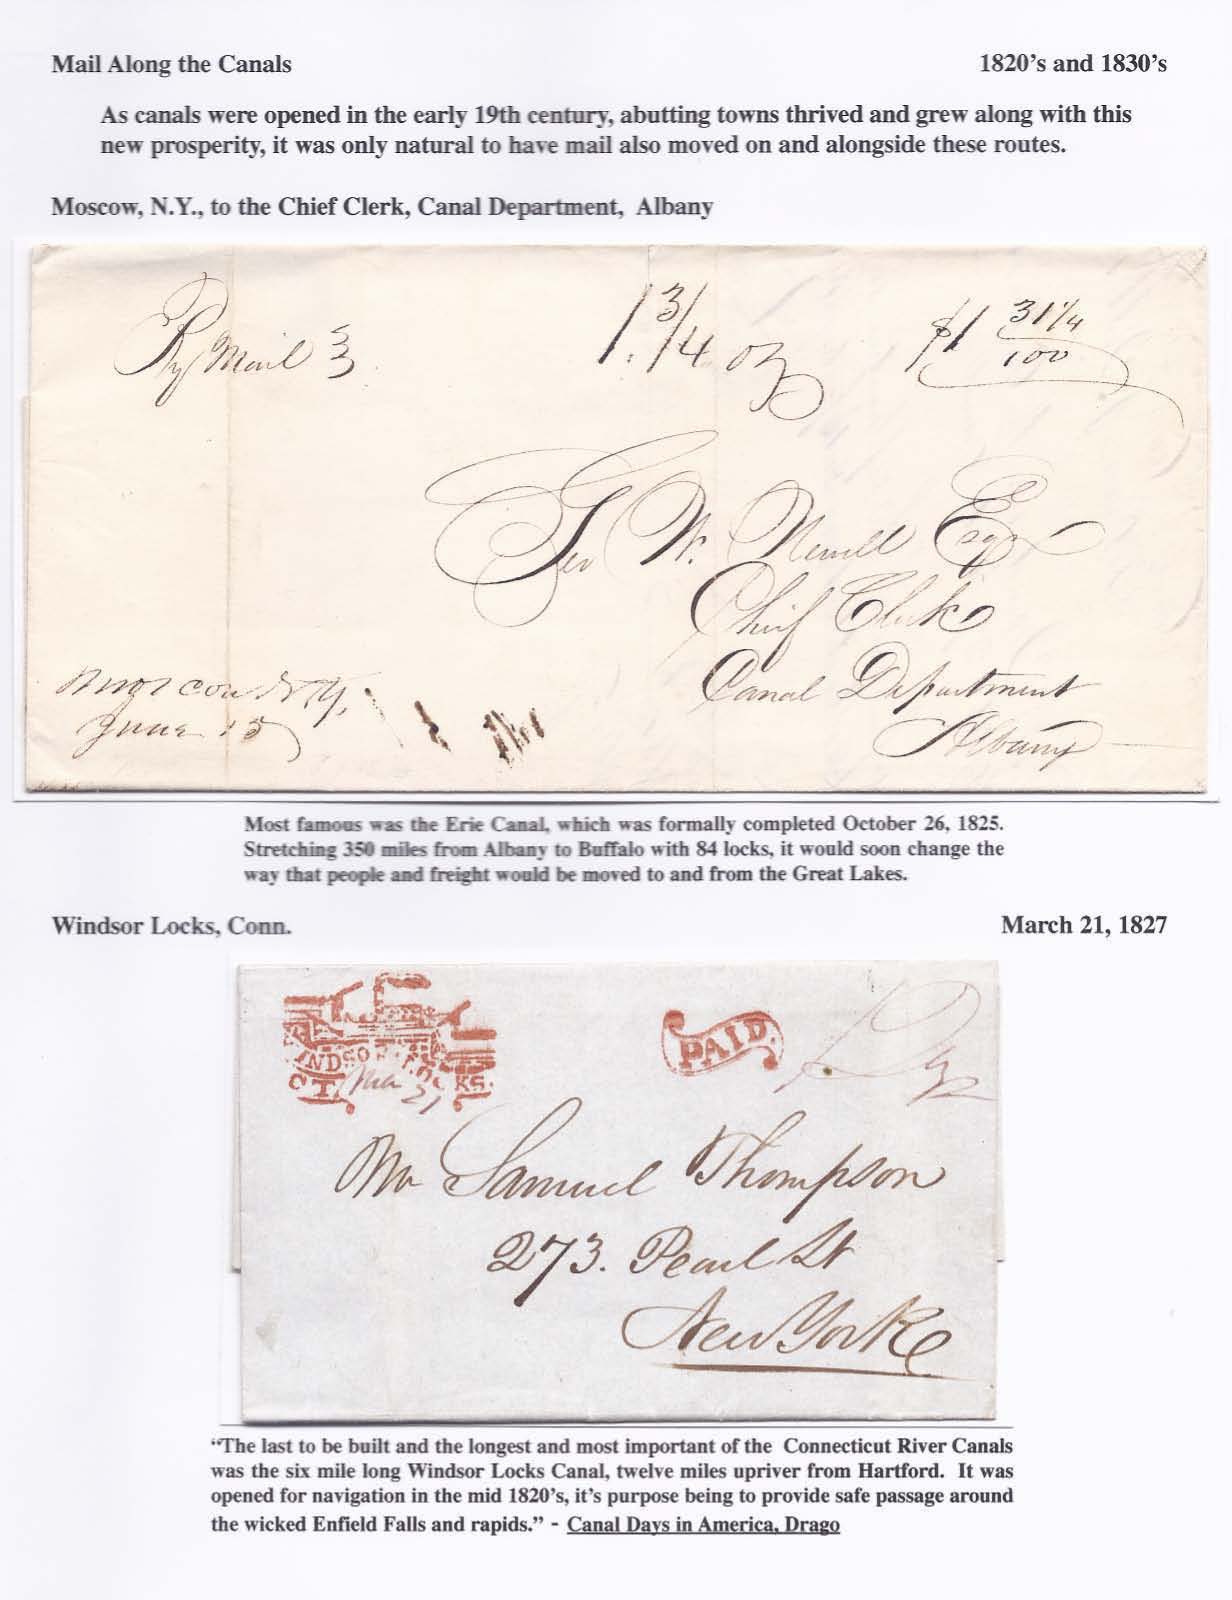 Mail Along the Canals 1820's and 1830's
As canals were opened in the early 19th century, abutting towns thrived and grew along with this
new prosperity, it was only natural to have mail also moved on and alongside these routes.
Moscow, N.Y., to the Chief Clerk, Canal Department, Albany
By Mail 1.3/4 oz $1 31 1/4
100
Geo W. Newell Esqr
Chief Clerk
Canal Department
Albany
Moscow N Y,
June 15
Most famous was the Erie Canal, which was formally completed October 26, 1825.
Stretching 350 miles from Albany to Buffalo with 84 locks, it would soon change the
way that people and freight would be moved to and from the Great Lakes.
Windsor Locks, Conn. March 21, 1827
PAID.
WINDSOR LOCKS.
CT. Mar 21
Mr Samuel Thompson
273. Pearl St
New York
“The last to be built and the longest and most important of the Connecticut River Canals
was the six mile long Windsor Locks Canal, twelve miles upriver from Hartford. It was
opened for navigation in the mid 1820's, it's purpose being to provide safe passage around
the wicked Enfield Falls and rapids.” - Canal Days in America, Drago